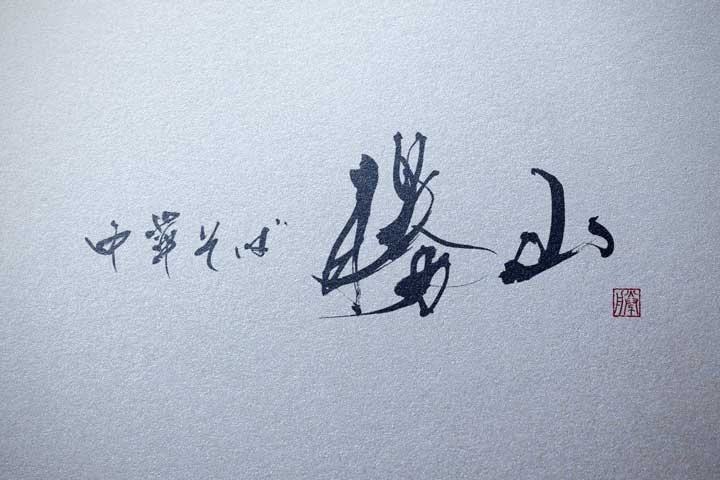 中華そば 勝山